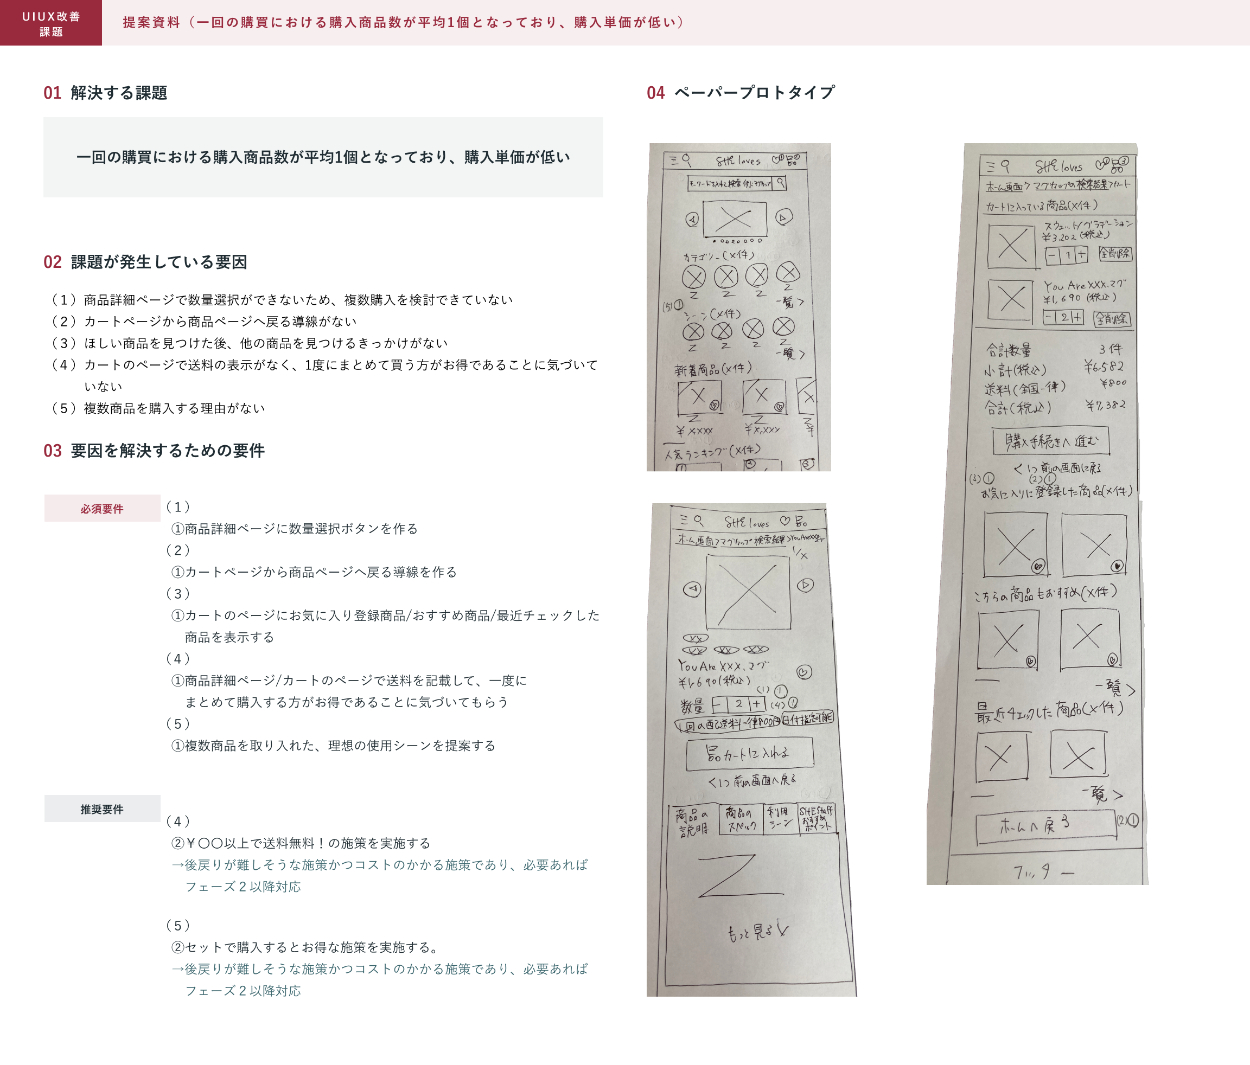 UIUX改善
課題
提案資料（一回の購買における購入商品数が平均1個となっており、購入単価が低い）
01 解決する課題
一回の購買における購入商品数が平均1個となっており、購入単価が低い
02 課題が発生している要因
（１）商品詳細ページで数量選択ができないため、複数購入を検討できていない
（２）カートページから商品ページへ戻る導線がない
（３）ほしい商品を見つけた後、他の商品を見つけるきっかけがない
（４）カートのページで送料の表示がなく、1度にまとめて買う方がお得であることに気づいて
いない
（５）複数商品を購入する理由がない
03 要因を解決するための要件
必須要件
（１）
①商品詳細ページに数量選択ボタンを作る
（２）
①カートページから商品ページへ戻る導線を作る
（３）
①カートのページにお気に入り登録商品/おすすめ商品/最近チェックした
商品を表示する
（４）
①商品詳細ページ/カートのページで送料を記載して、一度に
まとめて購入する方がお得であることに気づいてもらう
（５）
①複数商品を取り入れた、理想の使用シーンを提案する
推奨要件
（４）
②￥〇〇以上で送料無料！の施策を実施する
→後戻りが難しそうな施策かつコストのかかる施策であり、必要あれば
フェーズ２以降対応
（５）
②セットで購入するとお得な施策を実施する。
→後戻りが難しそうな施策かつコストのかかる施策であり、必要あれば
フェーズ２以降対応
04 ペーパープロトタイプ
SHE loves
カテゴリー(X件)
一覧 >
(5)①
シーン(X件)
一覧 >
新着商品(X件)
¥XXXX ¥X,XXX ¥
人気ランキング(X件)
SHE loves
1/X
You Are XXX.マグ
¥1,690(税込)
(1)①
数量 - 2 + (4)①
カートに入れる
<1つ前の画面へ戻る
商品の説明 商品のスペック 利用シーン SHE staffおすすめポイント
もっと見る
SHE loves
ホーム画面>マグカップの検索結果>カート
カートに入っている商品(X件)
スウェット/グラデーション
¥3,202(税込)
- 1 + 全削除
You Are XXX.マグ
¥1,690(税込)
- 2 + 全削除
合計数量 3件
小計(税込) ¥6,582
送料(全国一律) ¥800
合計(税込) ¥7,382
購入手続きへ進む
<1つ前の画面に戻る
(2)①
お気に入りに登録した商品(X件)
こちらの商品もおすすめ(X件)
一覧 >
最近チェックした商品(X件)
一覧 >
ホームへ戻る (2)①
フッター